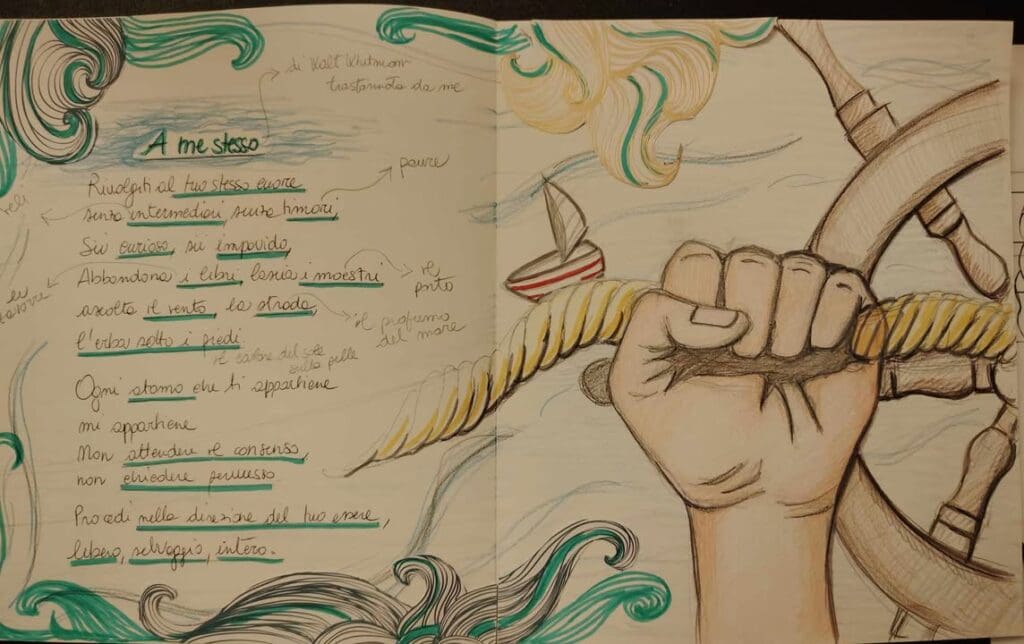 di Walt Whitman
trasformata da me
A me stesso
Rivolgiti al tuo stesso cuore
senza intermediari, senza timori,
Sii curioso, sii impavido,
Abbandona i libri, lascia i maestri
ascolta il vento, la strada,
l'erba sotto i piedi.
Ogni atomo che ti appartiene
mi appartiene
Non attendere il consenso,
non chiedere permesso
Procedi nella direzione del tuo essere,
libero, selvaggio, intero.
paure
il
porto
il profumo
del mare
il calore del sole
sulla pelle